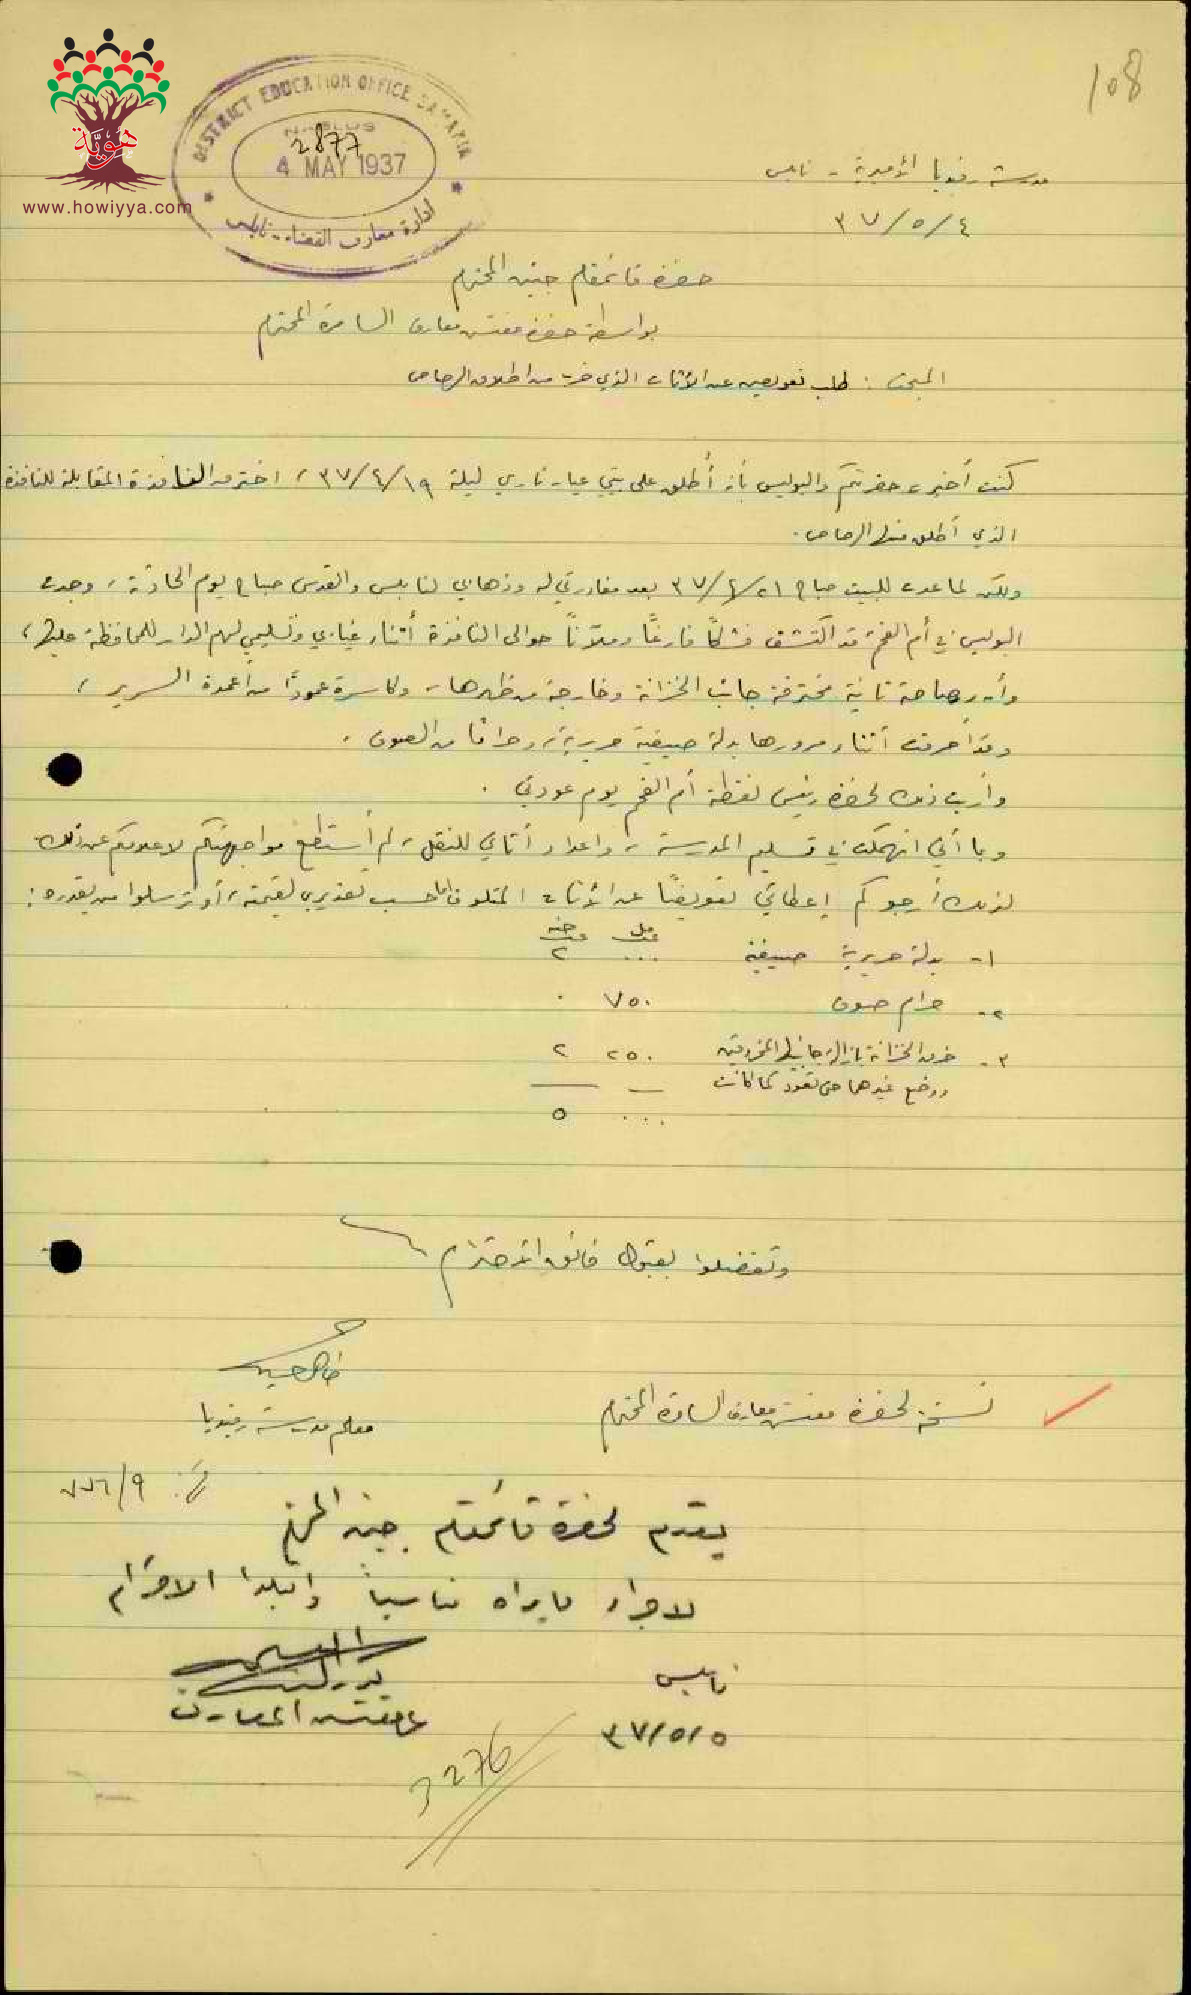 108
هوية
www.howiyya.com
DISTRICT EDUCATION OFFICE SAMARIA
NABLUS
2877
4 MAY 1937
ادارة معارف القضاء - نابلس
مدرسة رفيديا الأميرية - نابس
٣٧/٥/٤
حضرة قائمقام جنين المحترم
بواسطة حضرة مفتش معارف السامرة المحترم
المبحث: طلب تعويض عن الأثاث الذي خرب من اطلاق الرصاص
كنت أخبرت حضرتكم والبوليس بأنه أُطلق على بيتي عيار ناري ليلة ٣٧/٤/١٩، اخترق النافذة المقابلة للنافذة
الذي أطلق منها الرصاص.
ولكن لما عدت للبيت صباح ٣٧/٤/٢١ بعد مغادرتي له وذهابي لنابلس والقدس صباح يوم الحادثة، وجدت
البوليس في أم الفحم قد اكتشف فشكًا فارغًا وملآنًا حوالي النافذة أثناء غيابي وتسليمي لهم الدار للمحافظة عليها،
وأن رصاصة ثانية مخترقة جانب الخزانة وخارجة من ظهرها، وكاسرة عمودًا من أعمدة السرير،
وقد أحرقت أثناء مرورها بدلة صيفية حريرية، وحرامًا من الصوف.
وأريت ذلك لحضرة رئيس نقطة أم الفحم يوم عودتي.
وبما أني انهمكت في تسليم المدرسة، واعداد أثاثي للنقل، لم أستطع مواجهتكم لاعلامكم عن ذلك
لذلك أرجوكم إعطائي تعويضًا عن الأثاث المتلوف اما حسب تقديري لقيمته، أو ترسلوا من يقدره:
مل جنيه
١- بدلة حريرية صيفية ... ٢
٢- حرام صوف ٧٥٠ .
٣- خرق الخزانة بازالة جانبها المخروقين ٢٥٠ ٢
ووضع غيرهما حتى تعود كما كانت
... ٥
وتفضلوا بقبول فائق الاحترام
معلم مدرسة رفيديا
نسخة لحضرة مفتش معارف السامرة المحترم
يقدم لحضرة قائمقام جنين المحترم
لاجراء ما يراه مناسباً واقبلوا الاحترام
نابلس
٣٧/٥/٥
مفتش المعارف
3276